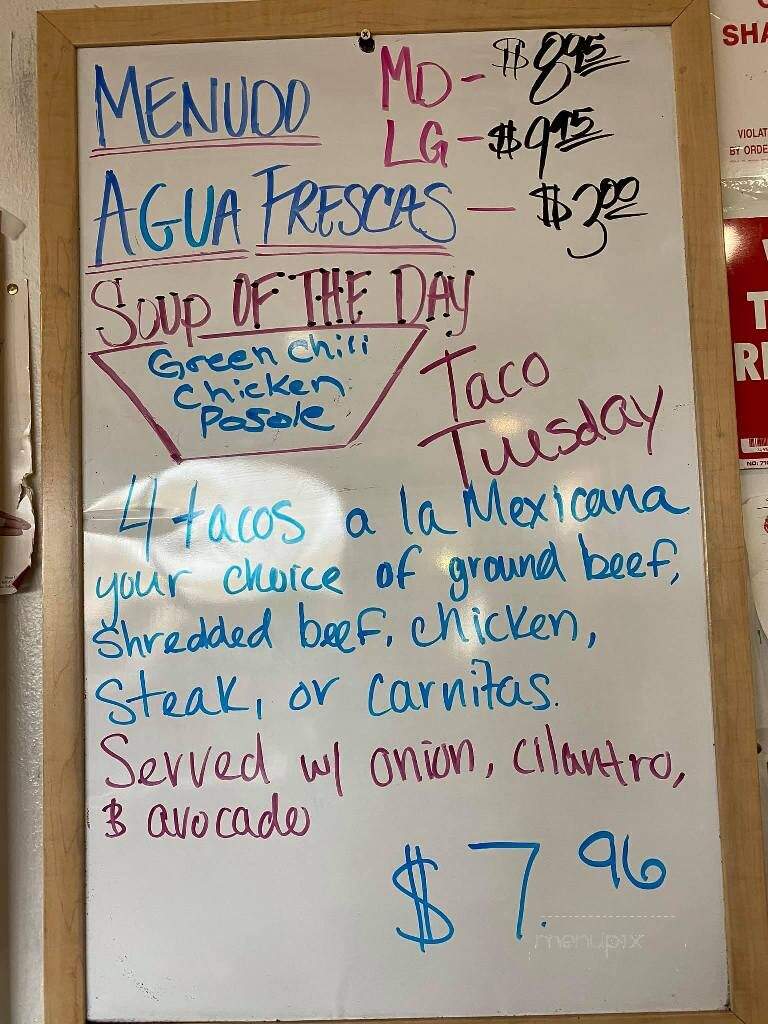 MENUDO MD - $8.95
LG - $9.95
AGUA FRESCAS - $3.00
SOUP OF THE DAY
Green Chili
Chicken
Posole
Taco
Tuesday
4 tacos a la Mexicana
your choice of ground beef,
shredded beef, chicken,
Steak, or carnitas.
Served w/ onion, cilantro,
& avocado
$7.96
menupix
SHA
VIOLAT
BY ORDE
T
RE
NO: 71